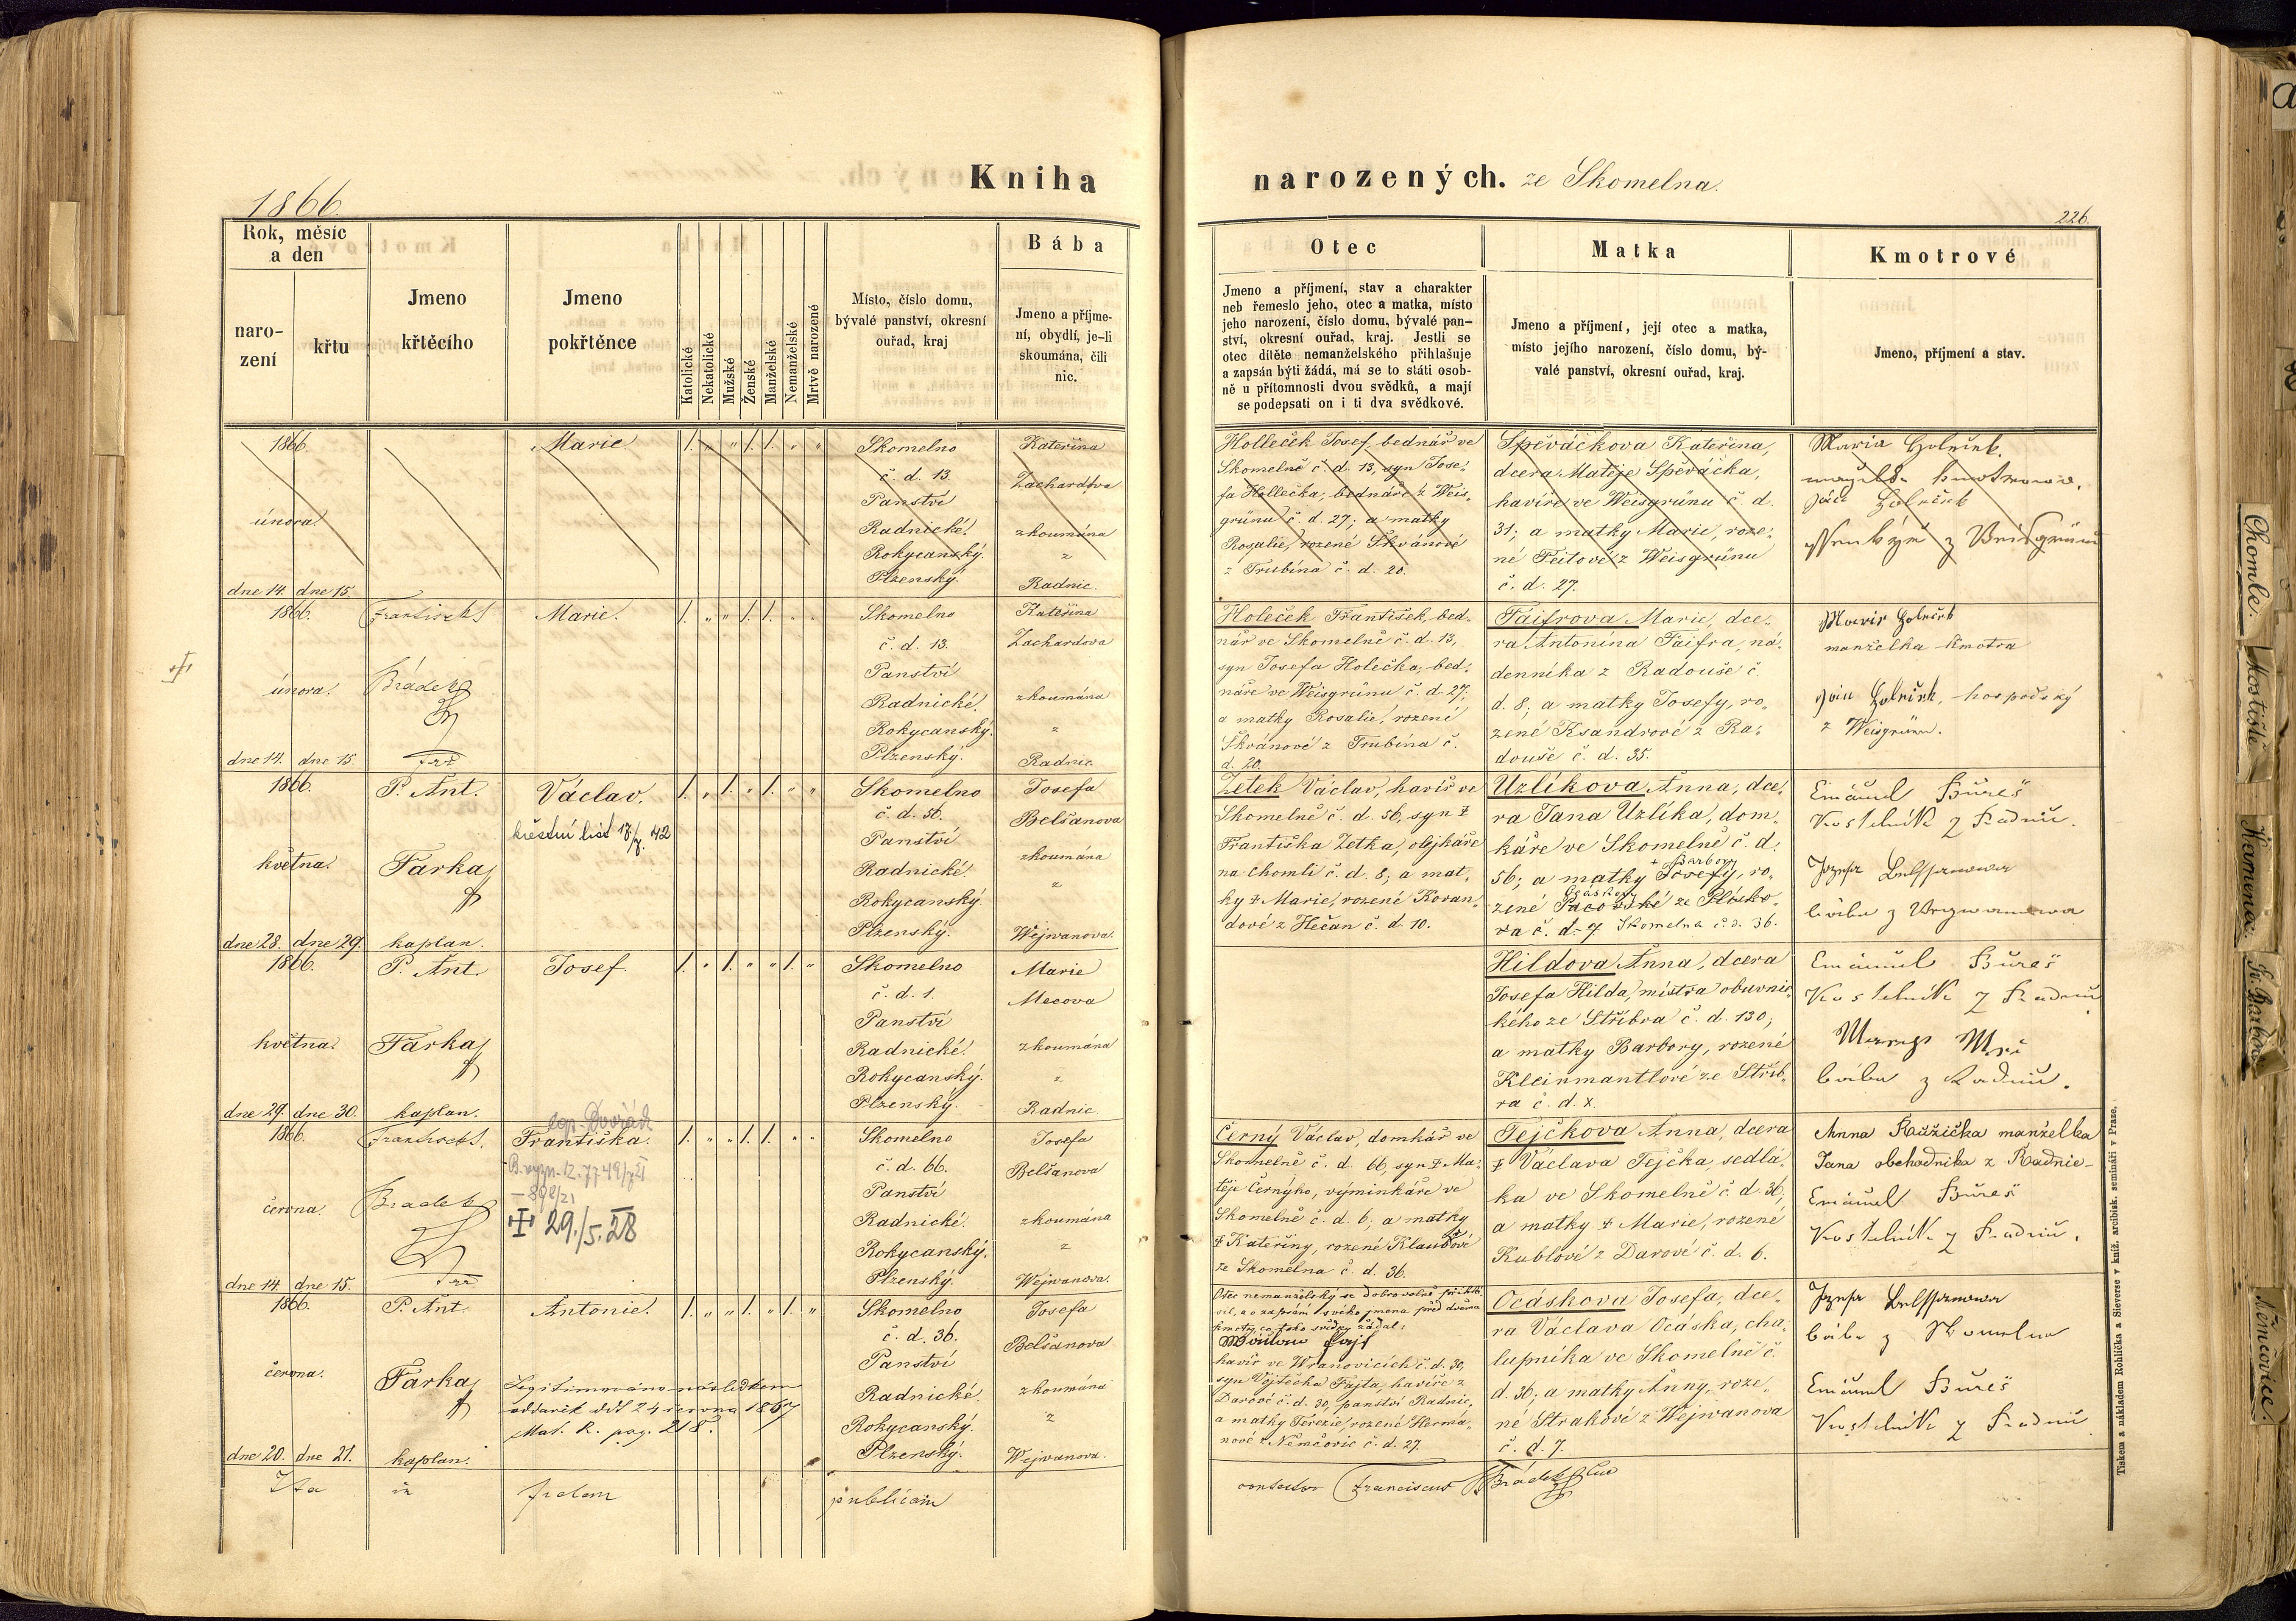 1866.
Kniha
narozených. ze Skomelna.
226.
Rok, měsíc
a den
naro-
zení
křtu
Jmeno
křtěcího
Jmeno
pokřtěnce
Katolické
Nekatolické
Mužské
Ženské
Manželské
Nemanželské
Mrtvě narozené
Místo, číslo domu,
bývalé panství, okresní
ouřad, kraj
Bába
Jmeno a příjme-
ní, obydlí, je-li
skoumána, čili
nic.
Otec
Jmeno a příjmení, stav a charakter
neb řemeslo jeho, otec a matka, místo
jeho narození, číslo domu, bývalé pan-
ství, okresní ouřad, kraj. Jestli se
otec dítěte nemanželského přihlašuje
a zapsán býti žádá, má se to státi osob-
ně u přítomnosti dvou svědků, a mají
se podepsati on i ti dva svědkové.
Matka
Jmeno a příjmení, její otec a matka,
místo jejího narození, číslo domu, bý-
valé panství, okresní ouřad, kraj.
Kmotrové
Jmeno, příjmení a stav.
1866.
února.
dne 14. dne 15.
Marie.
1. „ „ 1. 1. „ „
Skomelno
č. d. 13.
Panství
Radnické.
Rokycanský.
Plzenský.
Kateřina
Zachardova
zkoumána
z
Radnic.
Holleček Josef, bednář ve
Skomelně č. d. 13, syn Jose-
fa Hollečka, bednáře z Weis-
grünu č. d. 27; a matky
Rosalie, rozené Skvánové
z Trubína č. d. 20.
Spěváčkova Kateřina,
dcera Matěje Spěváčka,
havíře ve Weisgrünu č. d.
31; a matky Marie, roze-
né Feitové z Weisgrünu
č. d. 27.
Maria Holeček
1866.
února.
dne 14. dne 15.
Brádek
Marie.
1. „ „ 1. 1. „ „
Skomelno
č. d. 13.
Panství
Radnické.
Rokycanský.
Plzenský.
Kateřina
Zachardova
zkoumána
z
Radnic
Holeček František, bed-
nář ve Skomelně č. d. 13,
syn Josefa Holečka, bed-
náře ve Weisgrünu č. d. 27;
a matky Rosalie, rozené
Skvánové z Trubína č.
d. 20.
Faifrova Marie, dce-
ra Antonína Faifra, ná-
denníka z Radouše č.
d. 8; a matky Josefy, ro-
zené Ksandrové z Ra-
douše č. d. 35.
Holeček
manželka kmotra
Holeček, hospodský
z Weisgrünu.
1866.
května.
dne 28. dne 29.
P. Ant.
Farka
kaplan.
Václav.
křestní list 17/7. 42
1. „ 1. „ 1. „ „
Skomelno
č. d. 56.
Panství
Radnické.
Rokycanský.
Plzenský.
Josefa
Belšanova
zkoumána
z
Wejwanova.
Zetek Václav, havíř ve
Skomelně č. d. 56, syn ‡
Františka Zetka, olejkáře
na Chomli č. d. 8; a mat-
ky ‡ Marie, rozené Koran-
dové z Hečan č. d. 10.
Uzlíkova Anna, dce-
ra Jana Uzlíka, dom-
káře ve Skomelně č. d.
+ Barbory
56; a matky Josefy, ro-
Ocáskovy
zené Pacovské ze Plísko-
ra č. d. 7 Skomelna č. d. 36.
Emanuel Bureš
Kostelník z Radnic.
Josefa Belssanowa
bába z Wegwanowa
1866.
května.
dne 29. dne 30.
P. Ant.
Farka
kaplan.
Josef.
1. „ 1. „ „ 1. „
Skomelno
č. d. 1.
Panství
Radnické.
Rokycanský.
Plzenský.
Marie
Mecova
zkoumána
z
Radnic.
Hildova Anna, dcera
Josefa Hilda, mistra obuvnic-
kého ze Stříbra č. d. 130;
a matky Barbory, rozené
Kleinmantlové ze Stříb-
ra č. d. x.
Emanuel Bureš
Kostelník z Radnic
bába z Radnic.
1866.
června
dne 14. dne 15.
Bradek
Františka.
29./5. 28
1. „ „ 1. 1. „ „
Skomelno
č. d. 66.
Panství
Radnické.
Rokycanský.
Plzenský.
Josefa
Belšanova
zkoumána
z
Wejwanova.
Černý Václav, domkář ve
Skomelně č. d. 66, syn ‡ Ma-
těje Černýho, výminkáře ve
Skomelně č. d. 6; a matky
‡ Kateřiny, rozené Klaubové
ze Skomelna č. d. 36.
Tejčkova Anna, dcera
‡ Václava Tejčka, sedlá-
ka ve Skomelně č. d. 36,
a matky ‡ Marie, rozené
Kublové z Darové č. d. 6.
Anna Růžička manželka
Jana obchodníka z Radnic
Emanuel Bureš
Kostelník z Radnic.
1866.
června.
dne 20. dne 21.
P. Ant.
Farka
kaplan.
Antonie.
Legitimováno následkem
oddavek dit 24 června 1867
Mat. R. pag. 218.
1. „ „ 1. „ 1. „
Skomelno
č. d. 36.
Panství
Radnické.
Rokycanský.
Plzenský.
Josefa
Belšanova
zkoumána
z
Wejwanova.
Otec nemanželský se dobrovolně přihlá-
sil, a o zapsání svého jmena před dvěma
kmotry co toho svědky žádal:
havíř ve Wranovicích č. d. 30,
syn Vojtěcha Fajta, havíře z
Darové č. d. 30, panství Radnic,
a matky Terezie, rozené Herma-
nové z Němčovic č. d. 27.
Ocáskova Josefa, dce-
ra Václava Ocáska, cha-
lupníka ve Skomelně č.
d. 36; a matky Anny, roze-
né Strakové z Wejwanova
č. d. 7.
Josefa Belssanowa
bába z Skomelna
Emanuel Bureš
Kostelník z Radnic
Ita in fidem publicam
Franciscus Brádek
Tiskem a nákladem Rohlíčka a Sieverse v kníž. arcibisk. semináři v Praze.
Chomle.
Hostiště
Kamenec
Sv. Barbora
Němčovice.